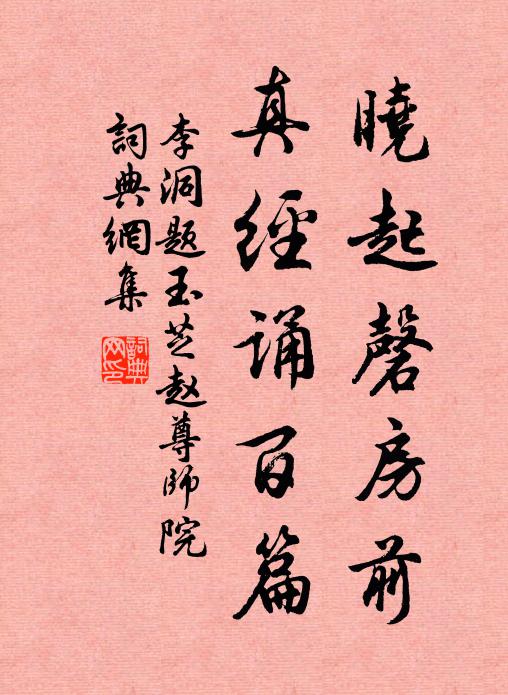 曉起磬房前
真經誦百篇
李洞題玉芝趙尊師院
詞典網集
詞典網印